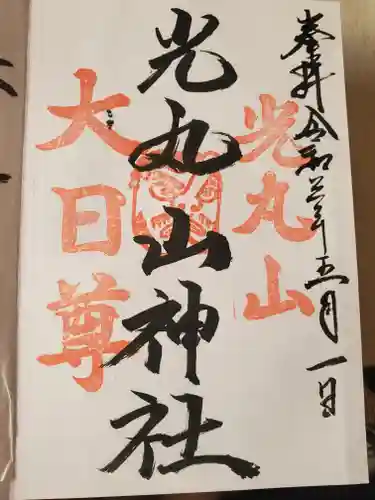 奉拝 令和年五月一日
光丸山
光丸山神社
大日尊